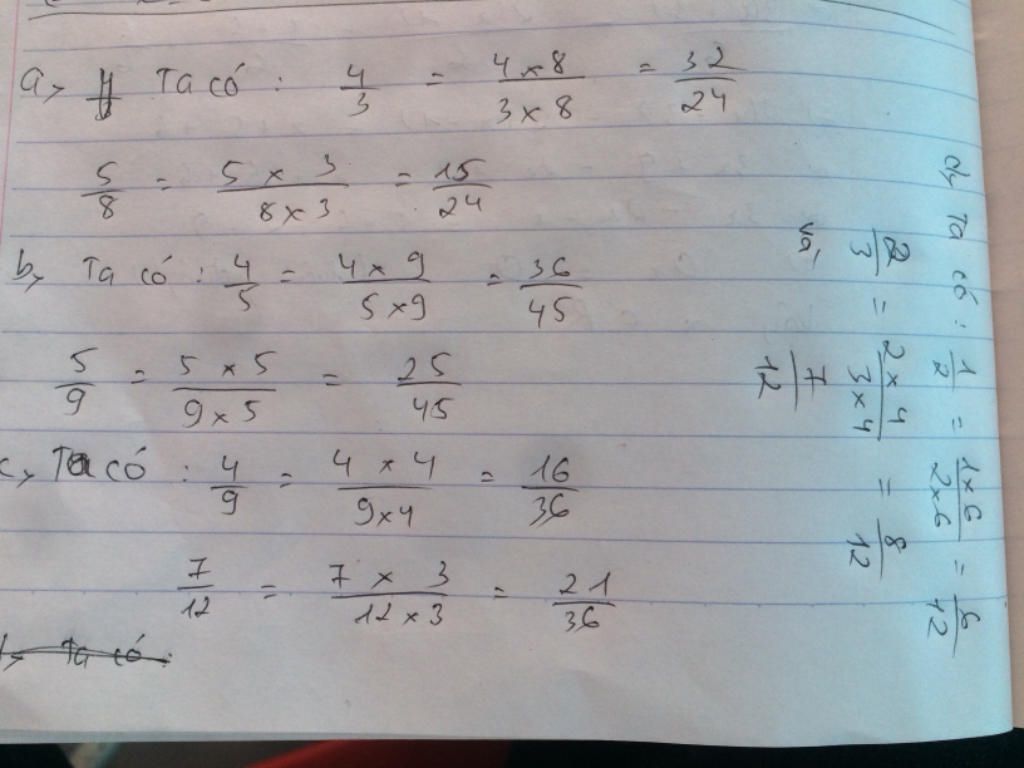 a, Ta có : 4/3 = 4 x 8 / 3 x 8 = 32/24
5/8 = 5 x 3 / 8 x 3 = 15/24
b, Ta có : 4/5 = 4 x 9 / 5 x 9 = 36/45
5/9 = 5 x 5 / 9 x 5 = 25/45
c, Ta có : 4/9 = 4 x 4 / 9 x 4 = 16/36
7/12 = 7 x 3 / 12 x 3 = 21/36
Ta có :
d, Ta có : 1/2 = 1 x 6 / 2 x 6 = 6/12
2/3 = 2 x 4 / 3 x 4 = 8/12
và 7/12